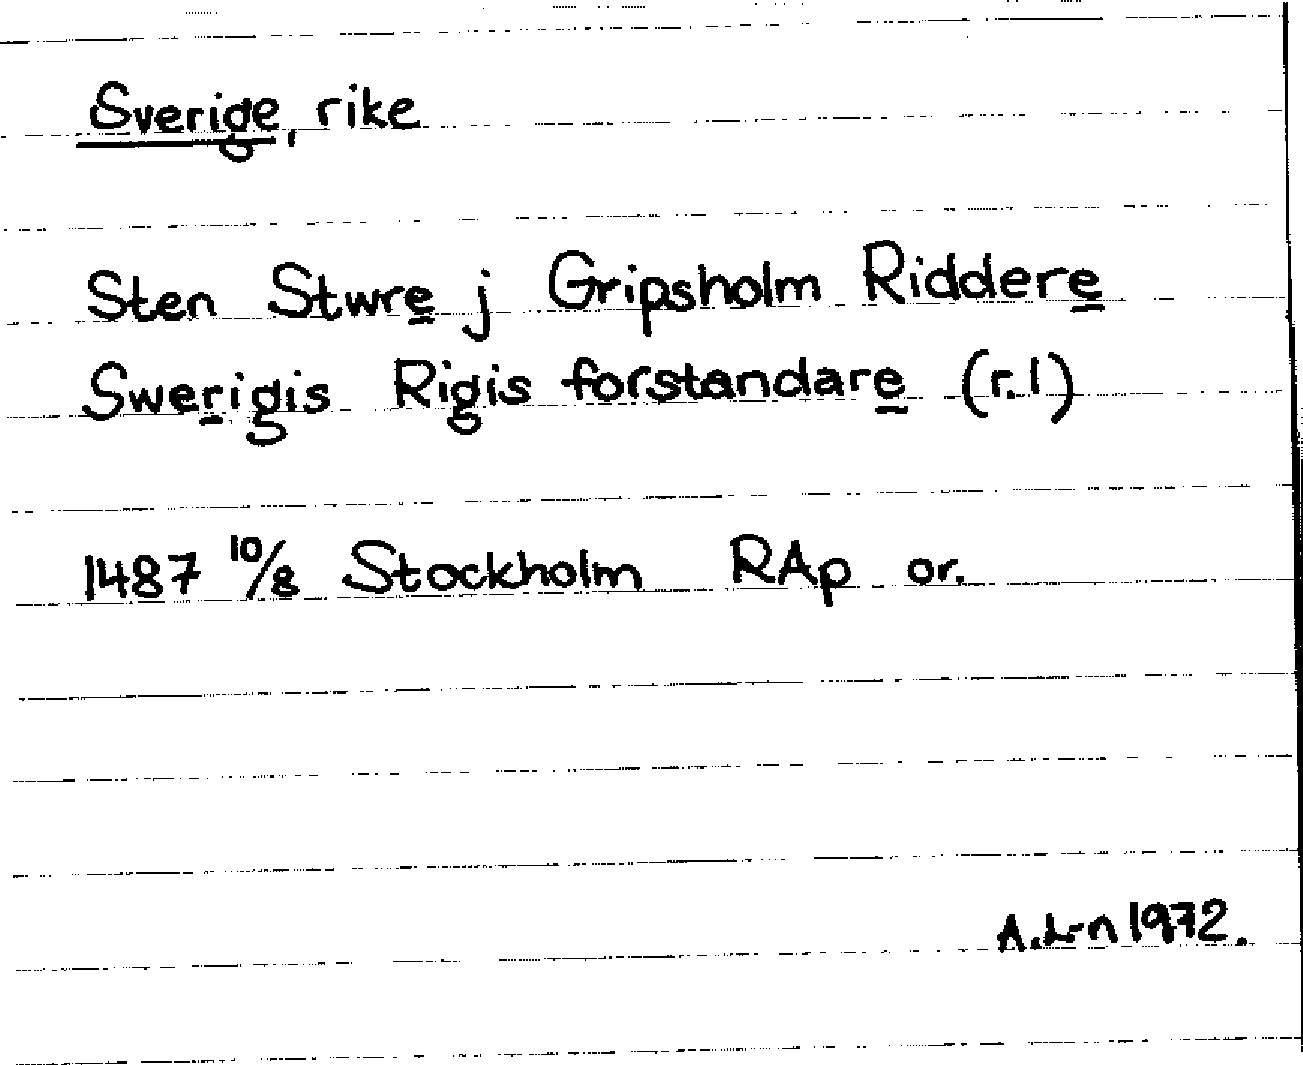 Sverige, rike
Sten Stwre j Gripsholm Riddere
Swerigis Rigis forstandare (r.l)
1487 10/8 Stockholm RAp or.
A.L-n 1972.